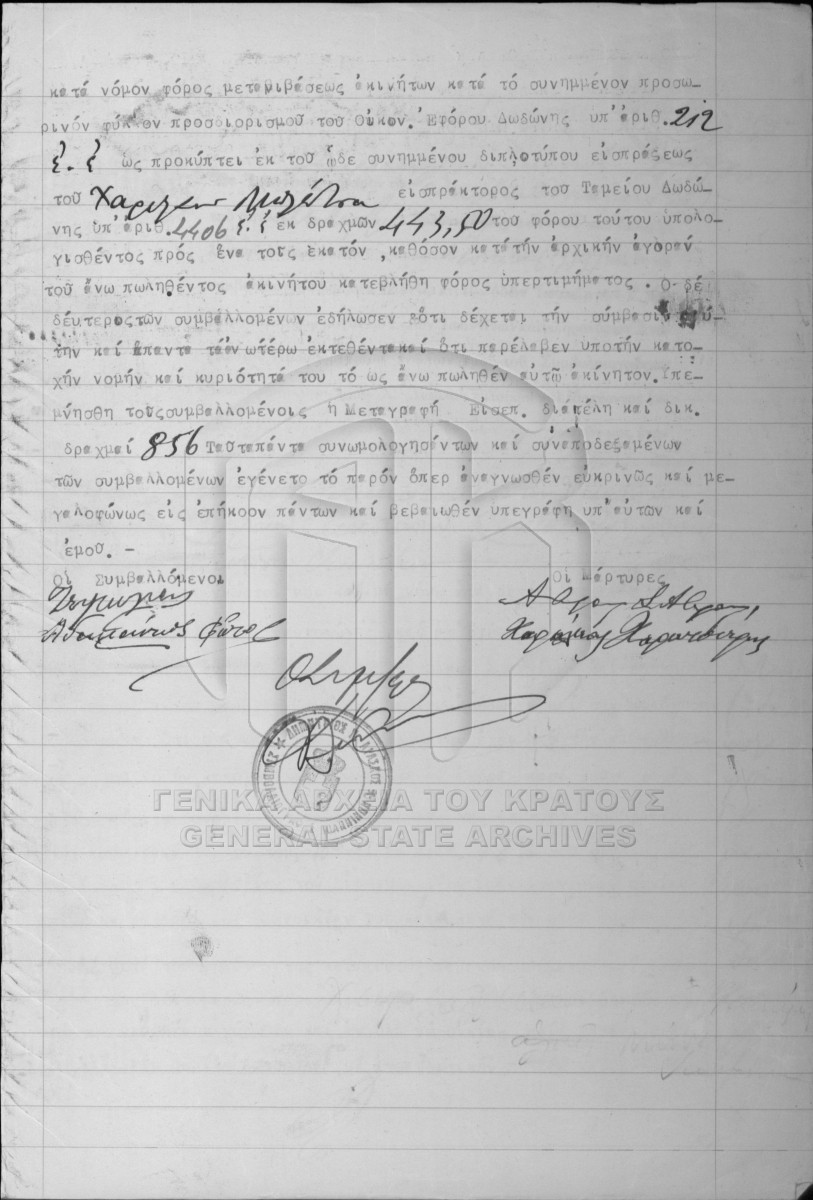 κατά νόμον φόρος μεταβιβάσεως ἀκινήτων κατά τό συνημμένον προσω-
ρινόν φύλλον προσδιορισμοῦ τοῦ Οἰκον. Ἐφόρου Δωδώνης ὑπ' ἀριθ. 212
ἐ. ἐ ὡς προκύπτει ἐκ τοῦ ὧδε συνημμένου διπλοτύπου εἰσπράξεως
τοῦ εἰσπράκτορος τοῦ Ταμείου Δωδώ-
νης ὑπ' ἀριθ. 4406 ἐ. ἐ ἐκ δραχμῶν 443,50 τοῦ φόρου τούτου ὑπολο-
γισθέντος πρός ἕνα τοῖς ἑκατόν ,καθόσον κατάτήν ἀρχικήν ἀγοράν
τοῦ ἄνω πωληθέντος ἀκινήτου κατεβλήθη φόρος ὑπερτιμήματος . Ο δέ
δεύτεροςτῶν συμβαλλομένων ἐδήλωσεν ὅτι δέχεται τήν σύμβασιν αὐ-
τήν καί ἅπαντα τἀνωτέρω ἐκτεθέντακαί ὅτι παρέλαβεν ὑποτήν κατο-
χήν νομήν καί κυριότητά του τό ὡς ἄνω πωληθέν αὐτῷ ἀκίνητον.Ὑπε-
μνήσθη τοῖςσυμβαλλομένοις ἡ Μεταγραφή Εἰσεπ. διάτέλη καί δικ.
δραχμαί 856 Ταῦταπάντα συνωμολογησάντων καί συναποδεξαμένων
τῶν συμβαλλομένων ἐγένετο τό παρόν ὅπερ ἀναγνωσθέν εὐκρινῶς καί με-
γαλοφώνως εἰς ἐπήκοον πάντων καί βεβαιωθέν ὑπεγράφη ὑπ'αὐτῶν καί
ἐμοῦ. -
Οἱ Συμβαλλόμενοι Οἱ Μάρτυρες
ΓΕΝΙΚΑ ΑΡΧΕΙΑ ΤΟΥ ΚΡΑΤΟΥΣ
GENERAL STATE ARCHIVES